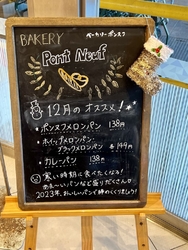 BAKERY
ベーカリーポンヌフ
Pont Neuf
12月のオススメ!
・ポンヌフメロンパン 138円
・ホイップメロンパン・
ブラックメロンパン 各149円
・カレーパン 138円
寒い時期に食べたくなる!
あま〜いパンなど盛りだくさん♡
2023年、おいしいパンで締めくくりましょう!